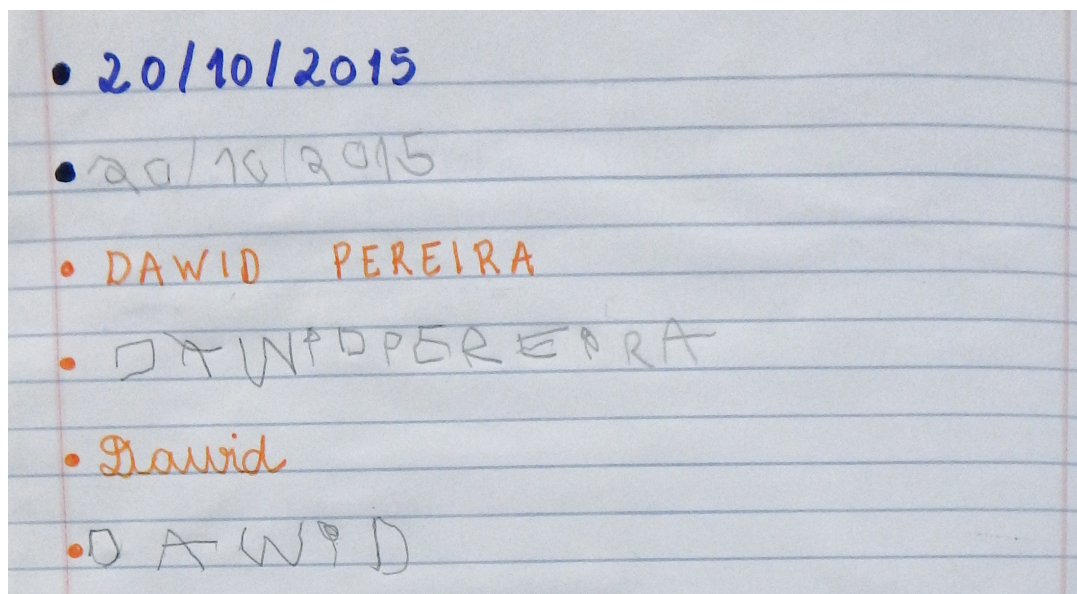 • 20/10/2015
• 20/10/2015
• DAWID PEREIRA
• DAWiDPEREiRA
• Dawid
• DAWiD